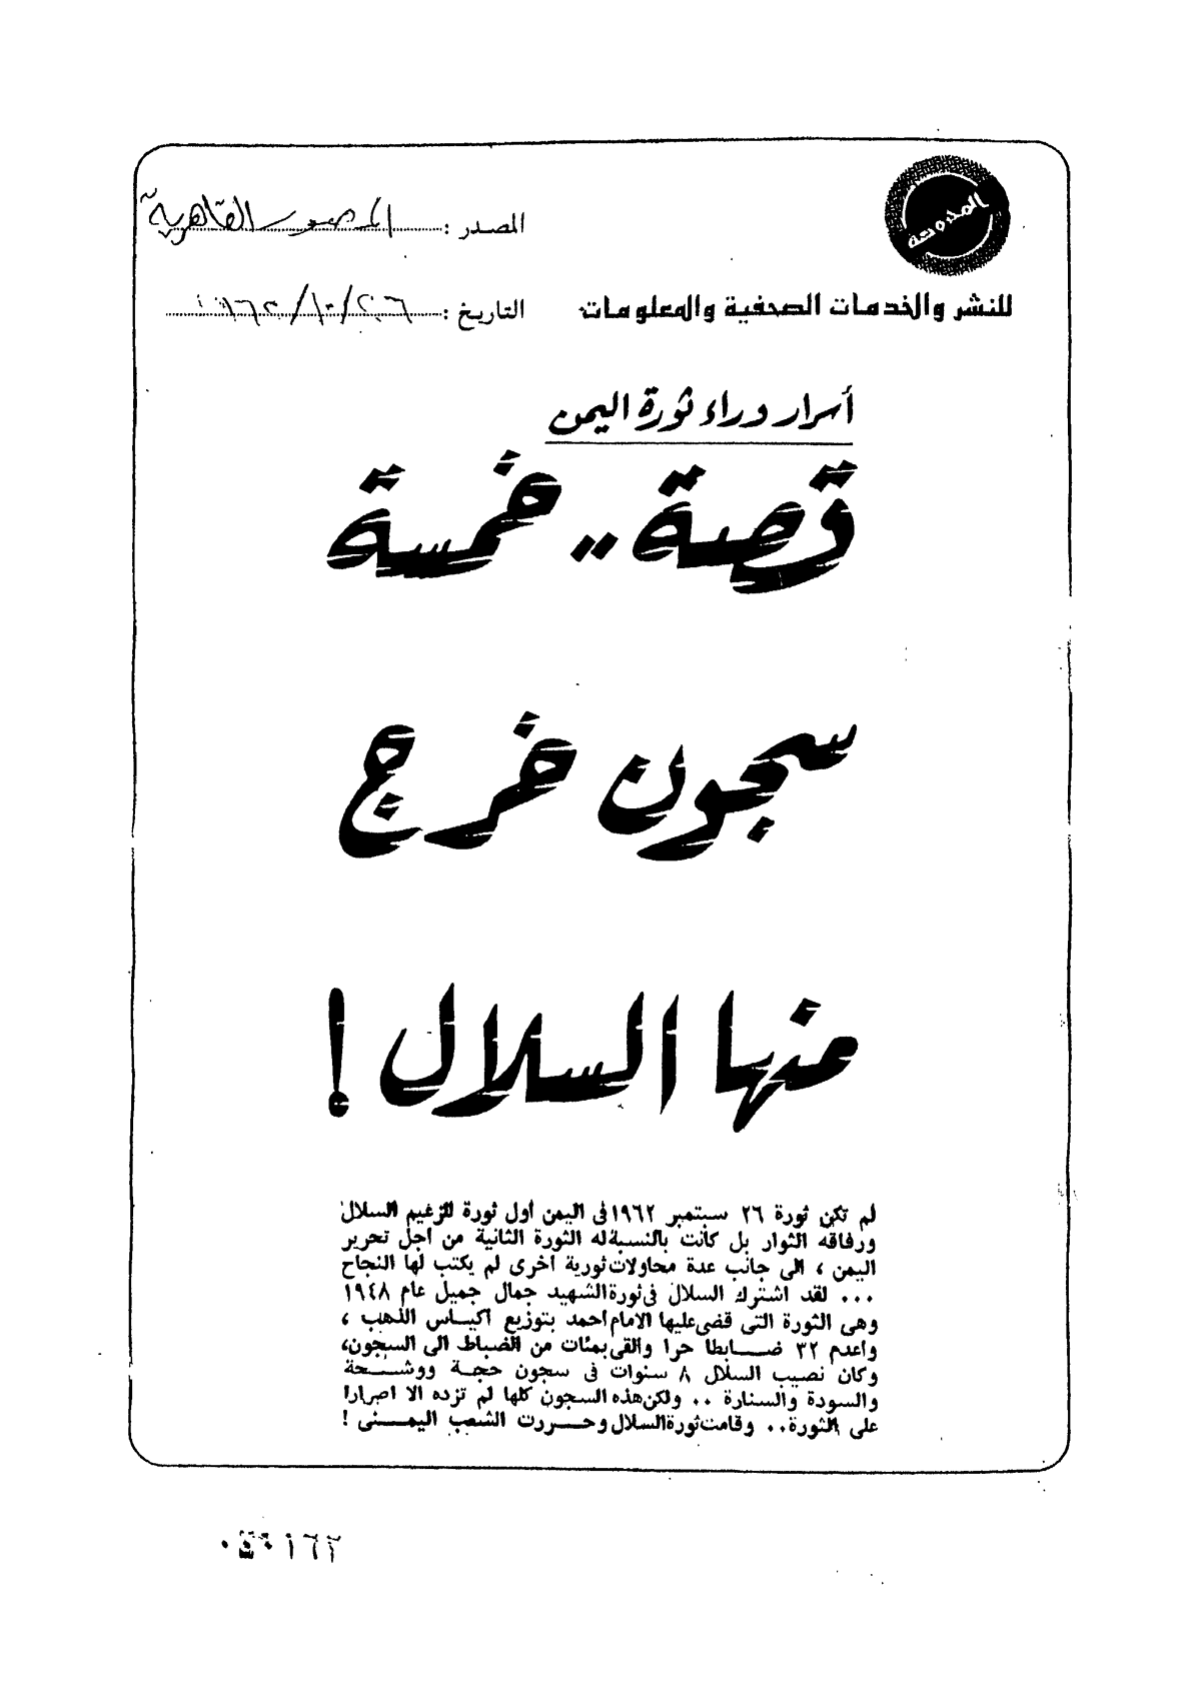 المحروسة
المصدر : المصور القاهرية
للنشر والخدمات الصحفية والمعلومات
التاريخ : ٢٦/١٠/١٩٦٢
أسرار وراء ثورة اليمن
قصة .. خمسة
سجون خرج
منها السلال !
لم تكن ثورة ٢٦ سبتمبر ١٩٦٢ فى اليمن أول ثورة للزعيم السلال
ورفاقه الثوار بل كانت بالنسبة له الثورة الثانية من أجل تحرير
اليمن ، الى جانب عدة محاولات ثورية أخرى لم يكتب لها النجاح
... لقد اشترك السلال فى ثورة الشهيد جمال جميل عام ١٩٤٨
وهى الثورة التى قضى عليها الامام أحمد بتوزيع أكياس الذهب ،
وأعدم ٣٢ ضابطا حرا وألقى بمئات من الضباط الى السجون،
وكان نصيب السلال ٨ سنوات فى سجون حجة ووشحة
والسودة والسنارة .. ولكن هذه السجون كلها لم تزده الا اصرارا
على الثورة.. وقامت ثورة السلال وحررت الشعب اليمنى !